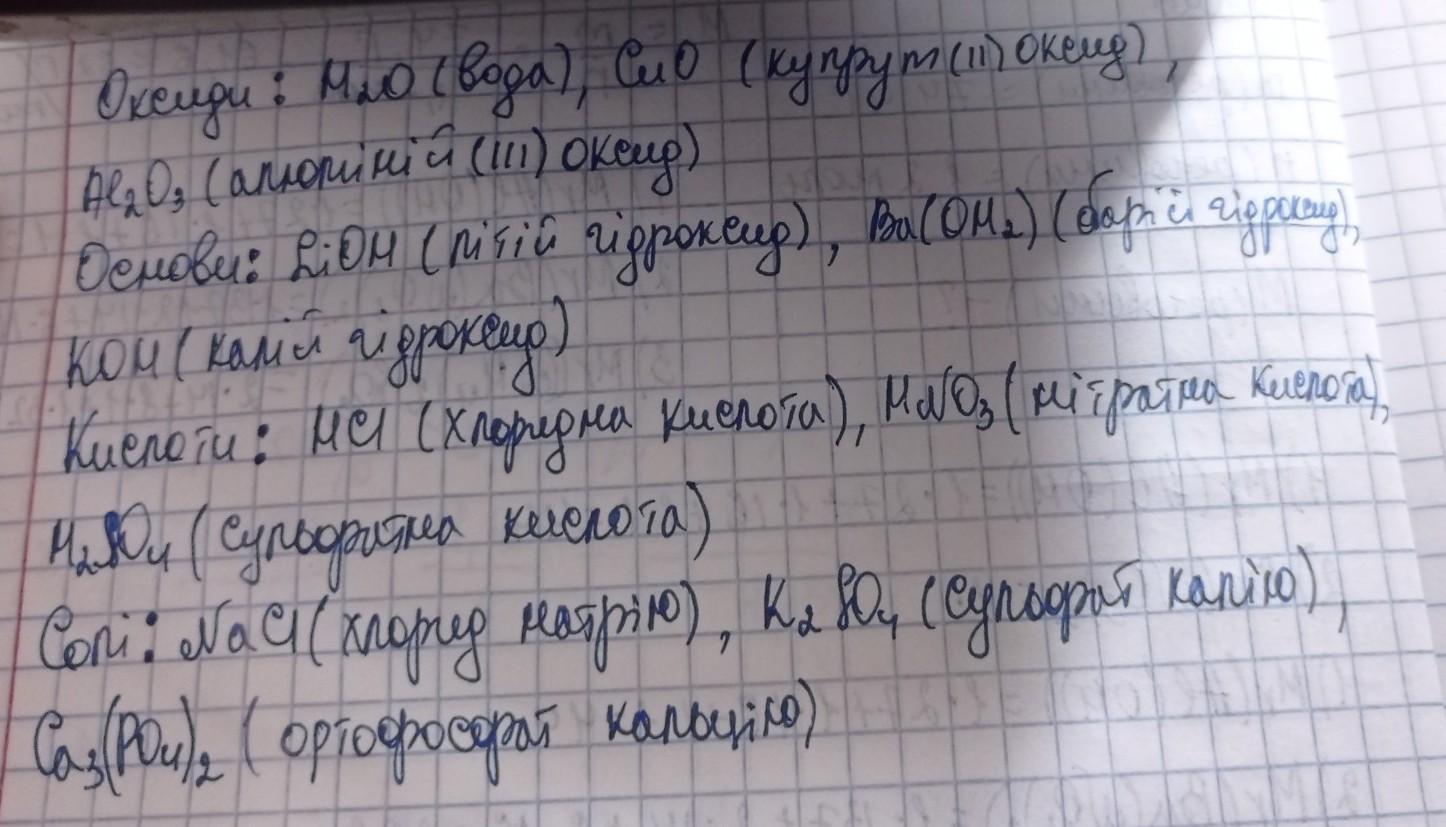 Оксиди: H₂O (вода), CuO (купрут (II) оксид),
Al₂O₃ (алюміній (III) оксид)
Основи: LiOH (літій гідроксид), Ba(OH₂) (барій гідроксид),
KOH (калій гідроксид)
Кислоти: HCl (хлоридна кислота), HNO₃ (нітратна кислота),
H₂SO₄ (сульфатна кислота)
Солі: NaCl (хлорид натрію), K₂SO₄ (сульфат калію),
Ca₃(PO₄)₂ (ортофосфат кальцію)